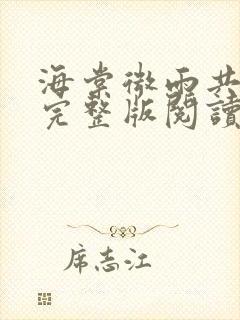 海棠微雨共
完整版閱讀
席志江